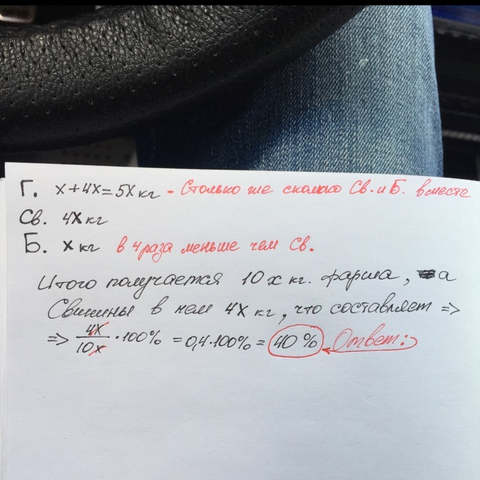 Г. x+4x=5x кг - Столько же сколько Св. и Б. вместе
Св. 4x кг
Б. x кг в 4 раза меньше чем Св.
Итого получается 10 x кг. фарша, а
Свинины в нем 4x кг, что составляет =>
=> 4x/10x · 100% = 0,4 · 100% = 40% Ответ: